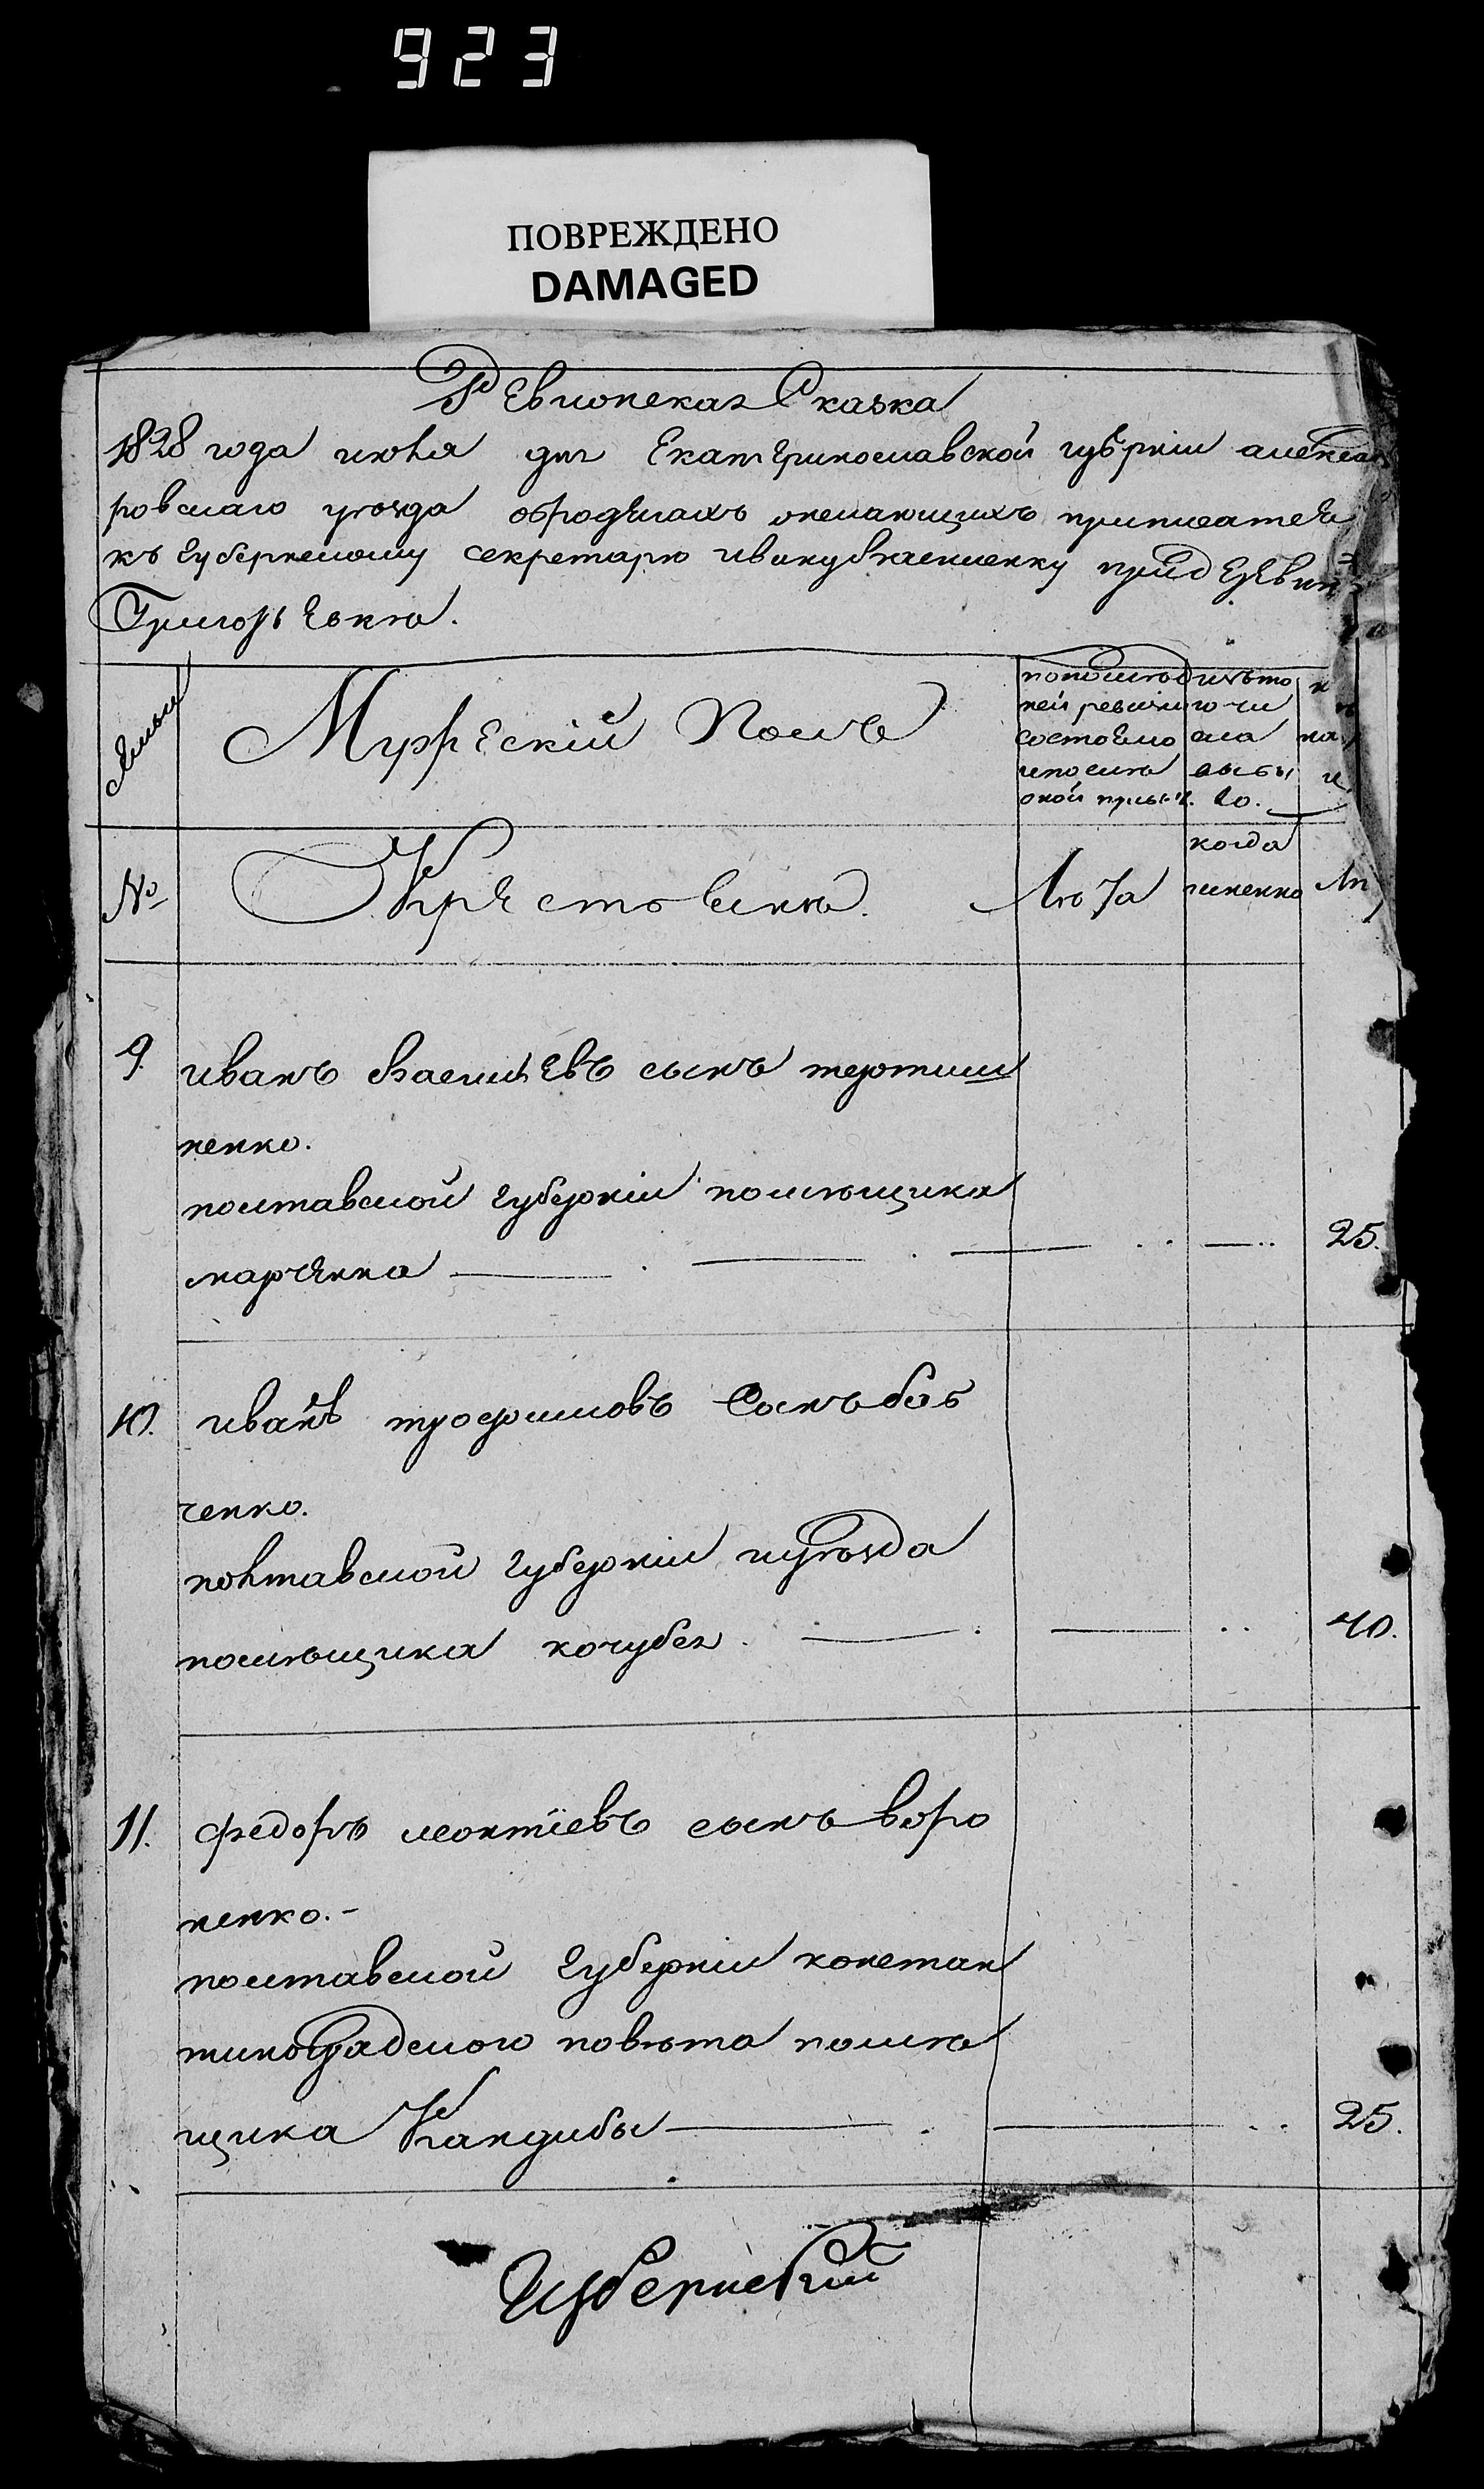 923
ПОВРЕЖДЕНО
DAMAGED
Ревизская Сказка
1828 года июля дня Екатеринославской губернии алексан
ровскаго уезда обродягахъ желающихъ приписатся
къ губернскому секретарю ивану василенку при деревни
Григорьевки.
Мужескій Полъ
по последней ревизіи состояло
изъ того числа выбыло.
№
Крестьяне.
Лѣта
когда именно
9. иванъ васильевъ сынъ тертиш
ненко.
полтавской губерніи помѣщика
марченка 25.
10. иванъ трофимовъ Сынъ баб
ченко.
полтавской губерніи иуѣзда
помѣщика кочубея 40.
11. федоръ леонтіевъ сынъ воро
ненко.-
полтавской губерніи констан
тиноградского повѣта помѣ
щика Кандибы 25.
Губернскій